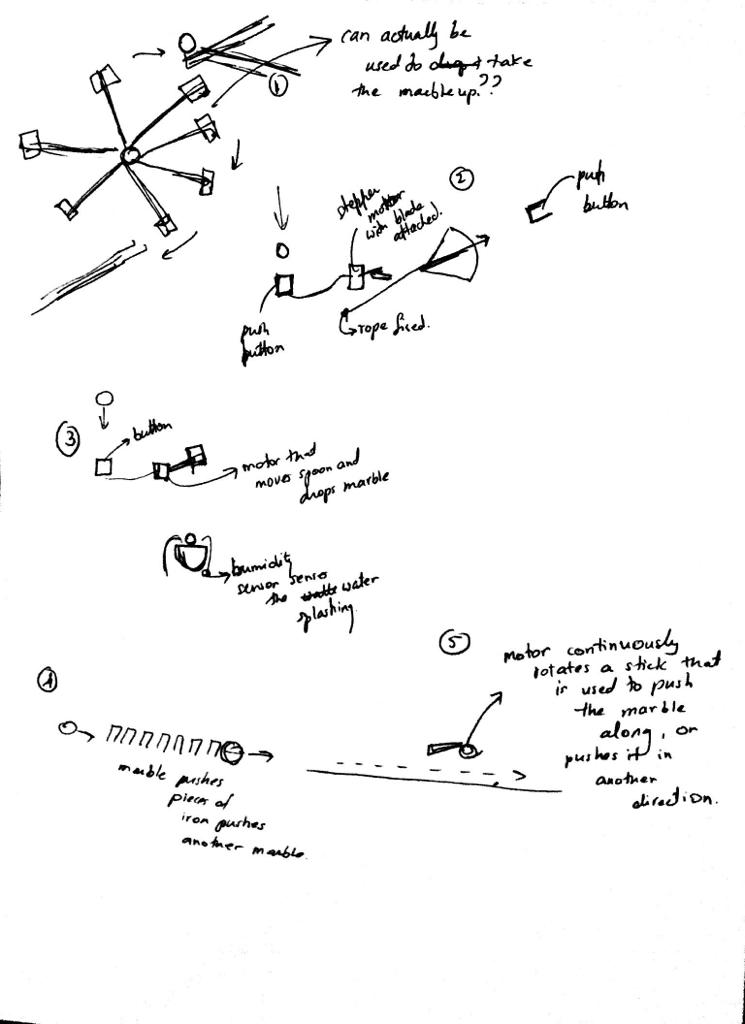 1
can actually be
used to take
the marble up??
2
push
button
stepper
motor
with blade
attached.
push
button
rope fixed.
3
button
motor that
moves spoon and
drops marble
humidity
sensor senso
the water
splashing.
4
marble pushes
pieces of
iron pushes
another marble.
5
motor continuously
rotates a stick that
is used to push
the marble
along, or
pushes it in
another
direction.